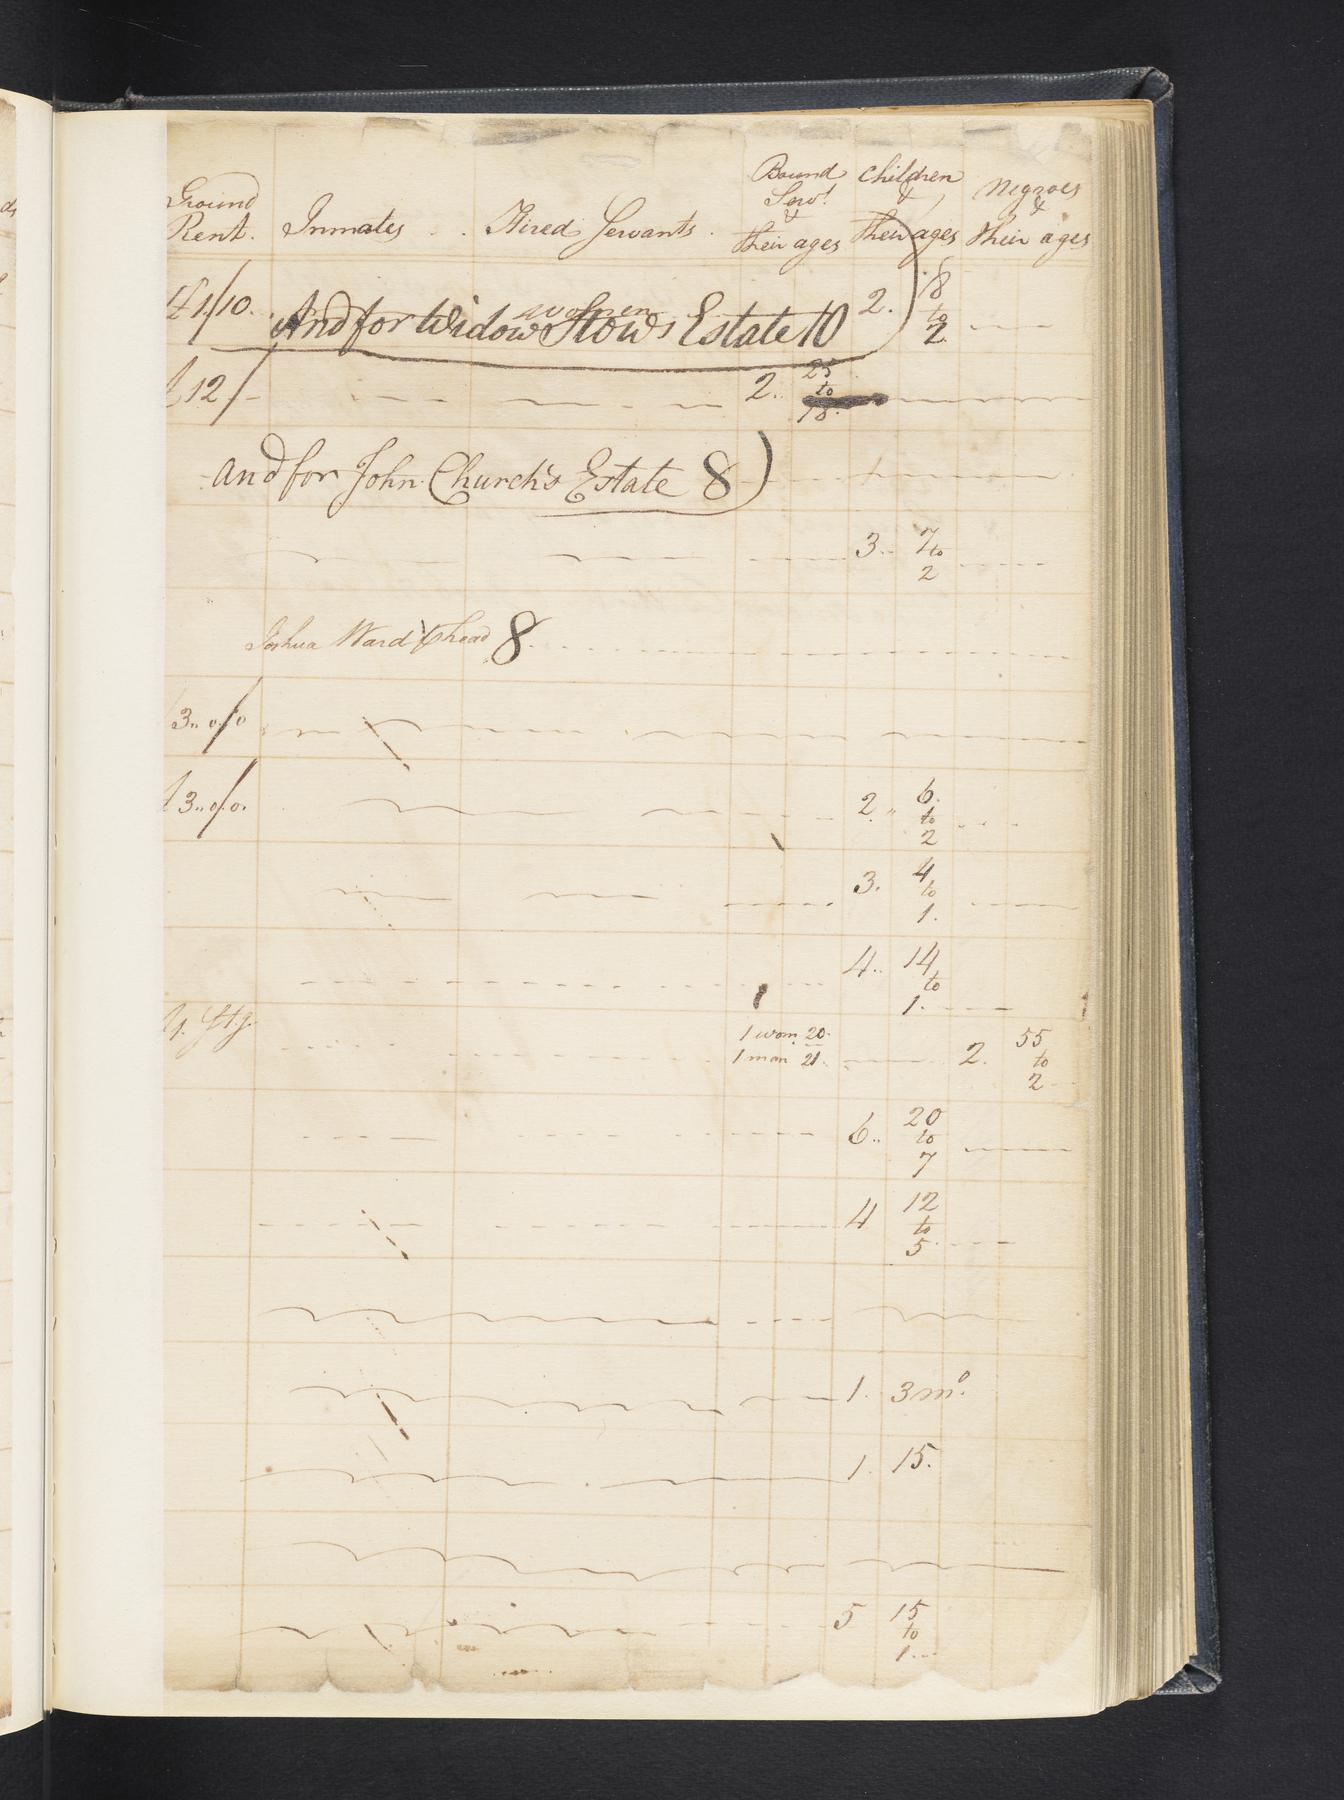 Ground Rent. Inmates . . Hired Servants . Bound Servt. & their ages Children & their ages Negroes & their ages
£1/10. women 2. 8 to 2
And for Widow Stow's Estate 10)
£12/ 2. 25 to 18.
and for John Church's Estate 8)
3. 7 to 2
Joshua Ward head 8
3.. 0/0
£3.. 0/0. 2 6. to 2
3. 4 to 1.
4.. 14 to 1.
1 wom. 20. 2. 55 to 2
1 man 21.
6.. 20 to 7
4 12 to 5
1. 3 mo.
1. 15.
5 15 to 1